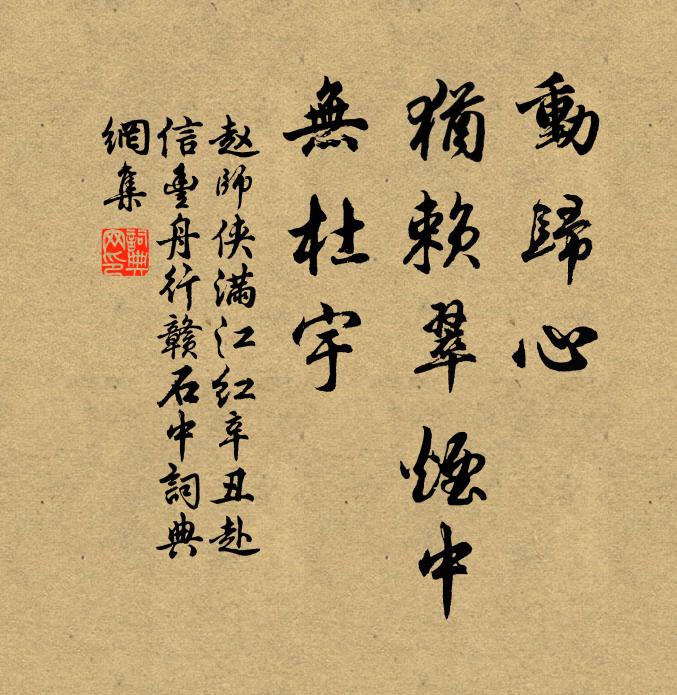 動歸心
猶賴翠煙中
無杜宇
赵師俠滿江紅辛丑赴
信豊舟行贛石中詞典
網集
詞典
网印